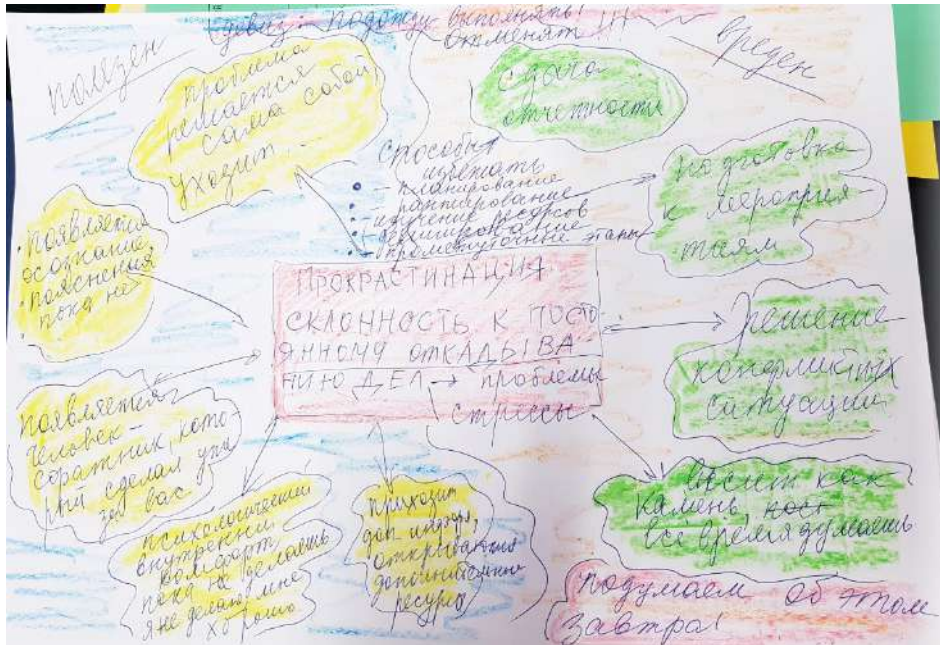 девиз: Подожду выполнять!
отменят!!!
полезен
вреден
проблема
решается
сама собой
уходит...
сдача
отчетности
способы
избежать
- планирование
ранжирование
- изучение ресурсов
- промежуточные этапы
подготовка
к мероприя-
тиям
• появляется
осознание,
• пояснения
пока нет
ПРОКРАСТИНАЦИЯ
СКЛОННОСТЬ К ПОСТО-
ЯННОМУ ОТКАДЫВА
НИЮ ДЕЛ → проблемы
стрессы
решение
конфликтных
ситуаций
появляется
человек-
соратник, кото-
рый сделал
за вас
психологический
внутренний
комфорт
пока не делаешь
я не делаю! мне
хорошо
приходит
доп
открываются
дополнительные
ресурсы
висит как
камень,
все время думаешь
подумаем об этом
завтра!